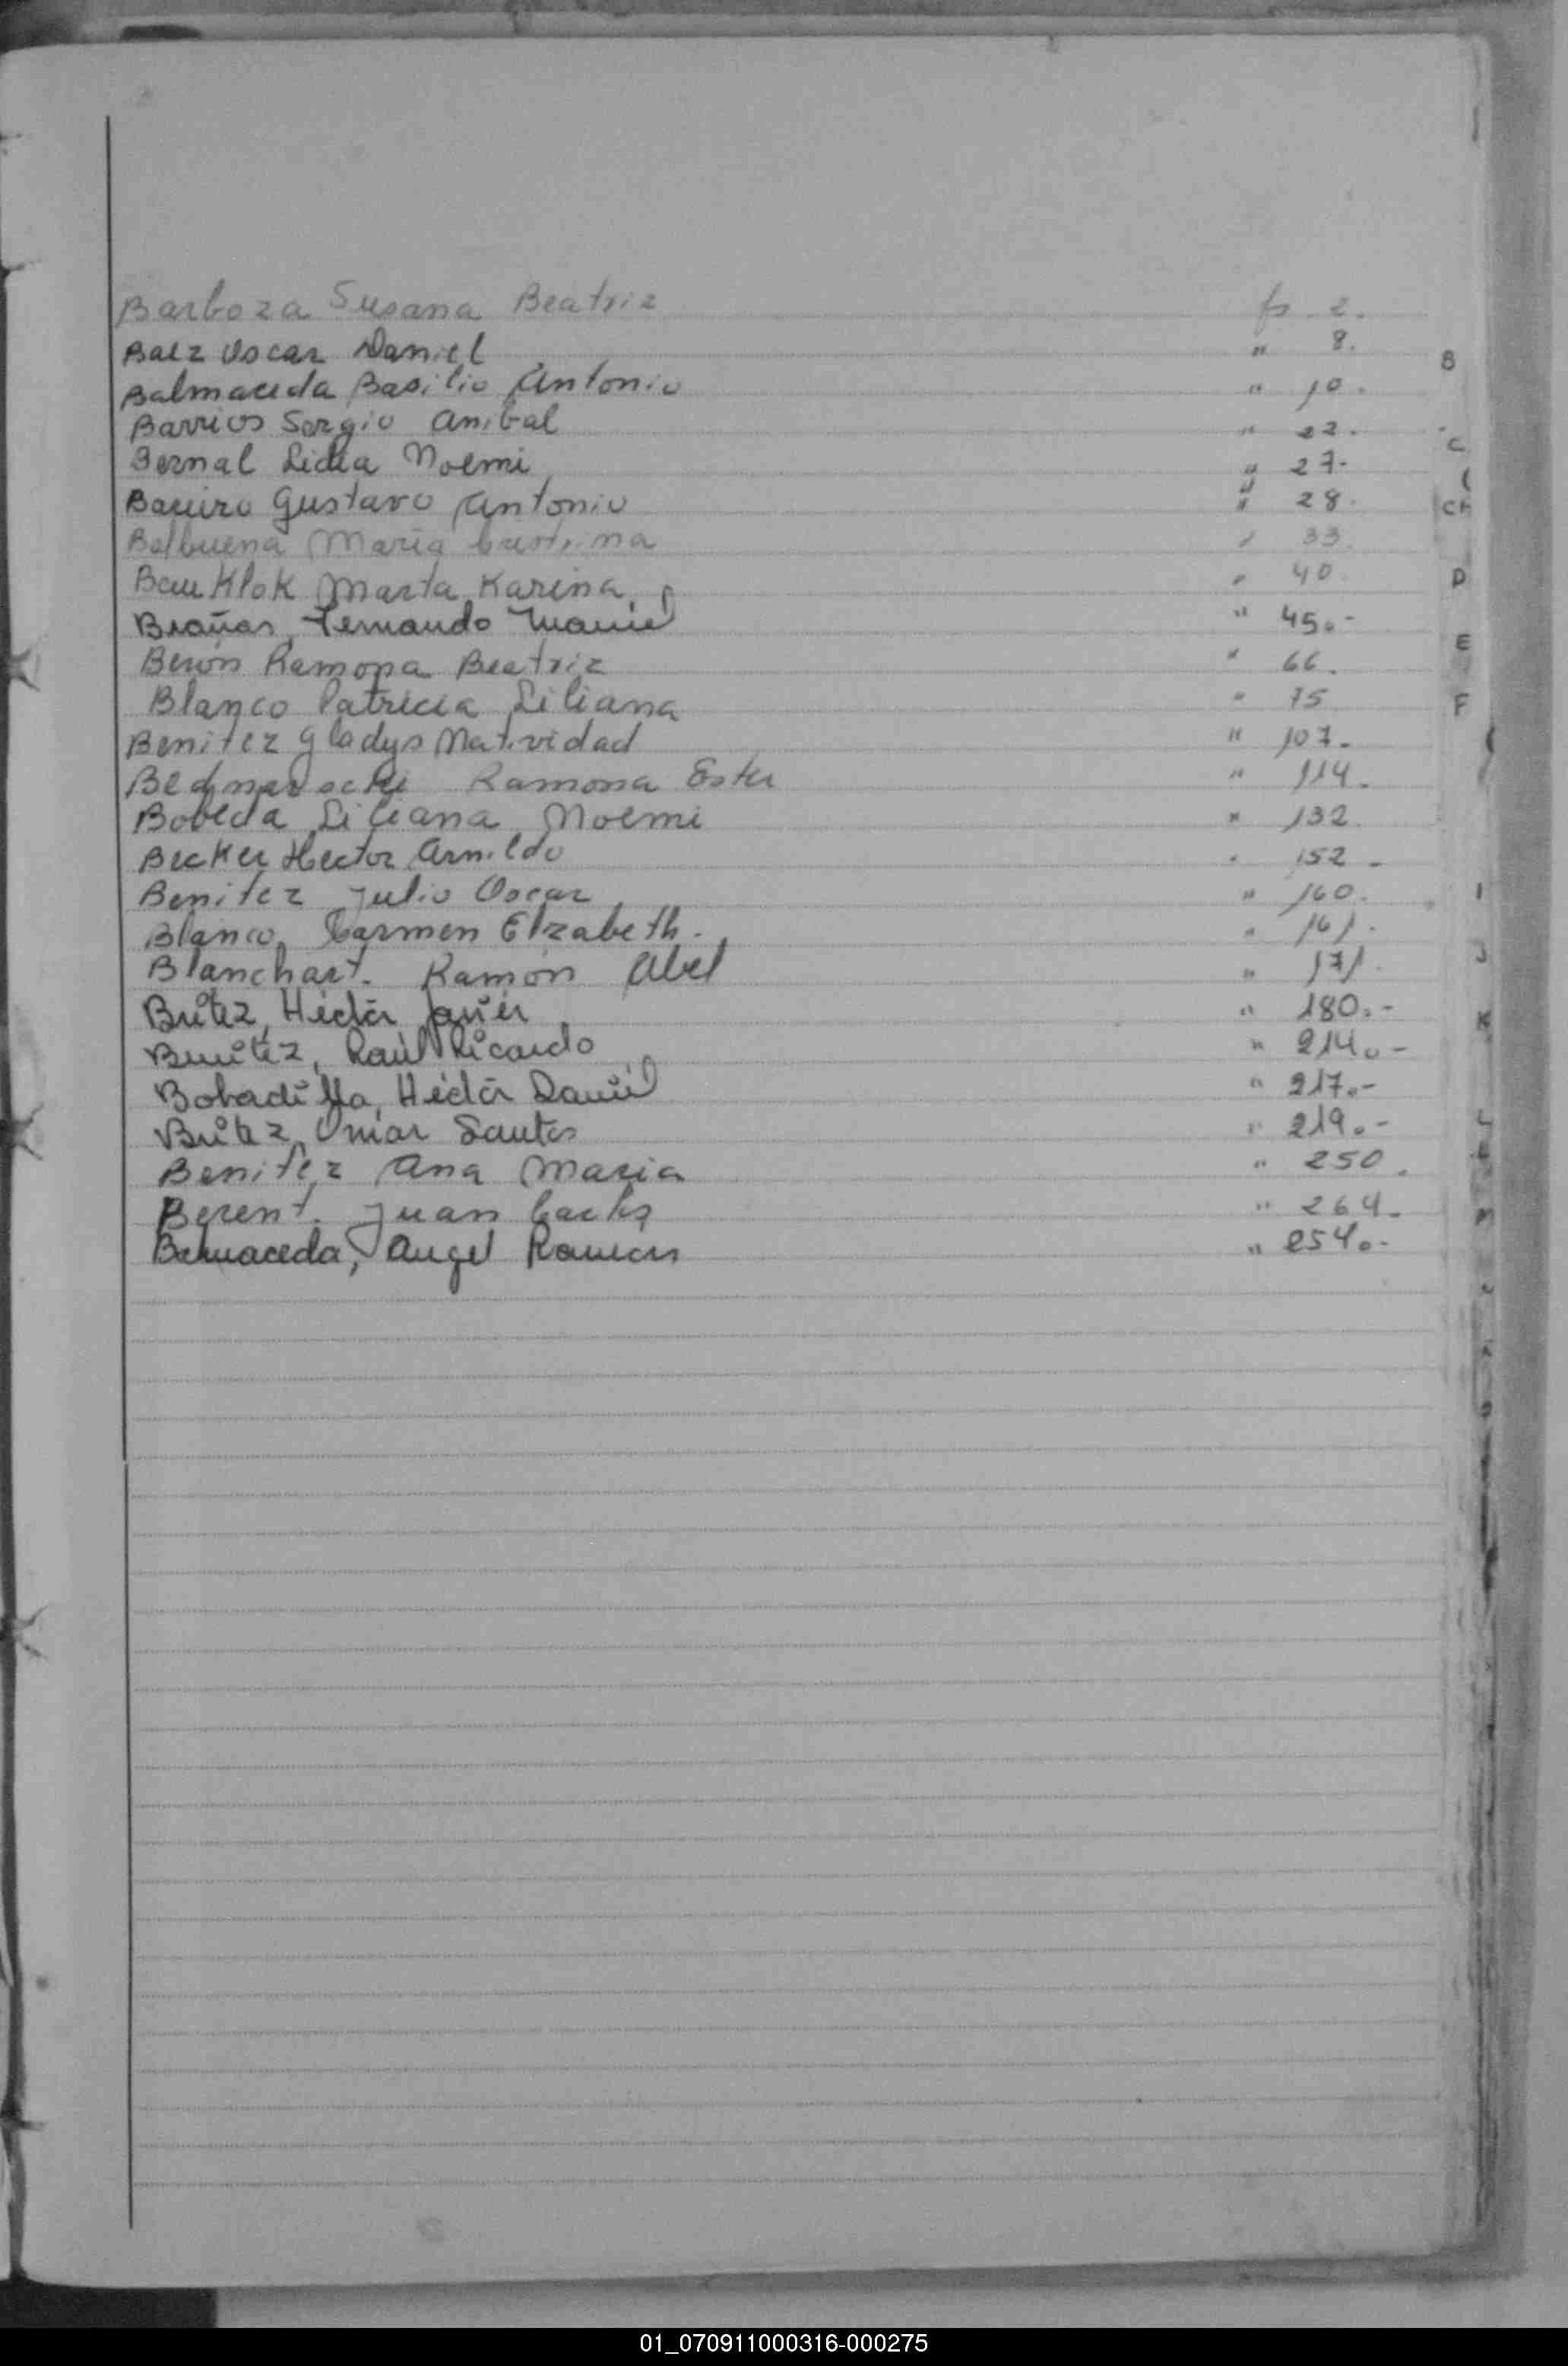 Barboza Susana Beatriz fs 2.
Baez Oscar Daniel " 8.
Balmaceda Basilio Antonio " 10.
Barrios Sergio Anibal " 22.
Bernal Lidia Noemi " 27-
Baceiro Gustavo Antonio " 28.
Balbuena Maria Cristina " 33.
Marta Karina " 40.
Brañas, Fernando " 45.-
Berón Ramona Beatriz " 66.
Blanco Patricia Liliana " 75
Benitez Gladys Natividad " 107-
Ramona Ester " 114.
Bobeda Liliana Noemi " 132.
Becker Hector Arnildo " 152-
Benitez Julio Oscar " 160.
Blanco, Carmen Elzabeth. " 161.
Blanchart. Ramón Abel " 171.
Britez, Héctor Javier " 180.-
Benitez, Raúl Ricardo " 214.-
Bobadilla, Héctor Daniel " 217.-
Britez, Omar Santos " 219.-
Benitez Ana Maria " 250.
Berent. Juan Carlos " 264.
Angel Ramón " 254.-
B
C
CH
D
E
F
I
J
K
L
M
01_070911000316-000275